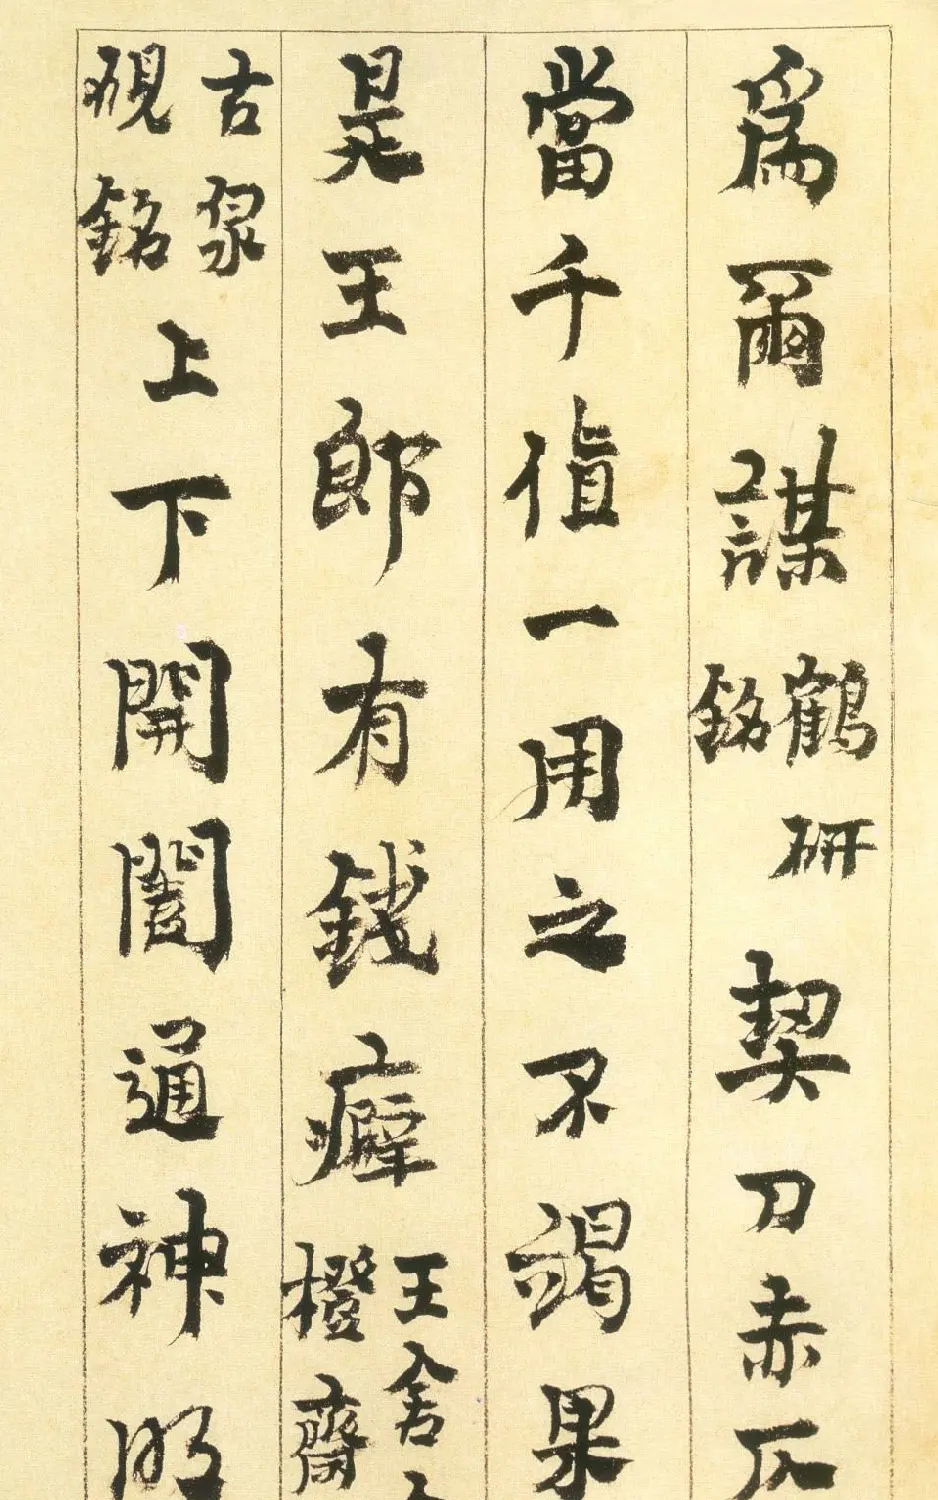 為爾謀鶴研銘契刀赤仄
當千值一用之不竭果
是王郎有錢癖王舍橙齋
古泉硯銘上下開闔通神明